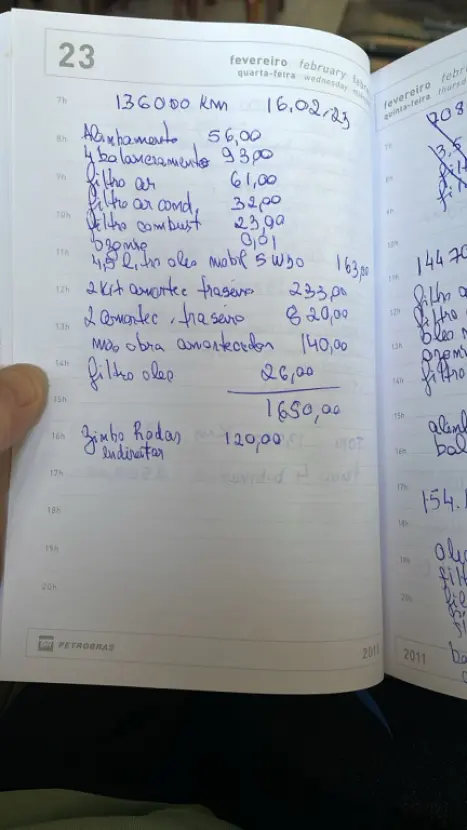 23
fevereiro february
quarta-feira wednesday
7h 136000 Km 16.02.23
8h Alinhamento 56,00
4 balanceamento 93,00
9h filtro ar 61,00
filtro ar cond. 32,00
10h filtro combust 23,90
Ozonio 0,01
11h 4,5 l, tro oleo mobil 5W30 163,00
12h 2 kit amortec traseiro 233,00
13h 2 amortec. traseiro 820,00
mao obra amortecedor 140,00
14h filtro oleo 26,00
15h 1650,00
16h Zimbo Rodas 120,00
endireitar
17h
18h
19h
20h
BR PETROBRAS
2011
fevereiro febr
quinta-feira thursd
708
3,5
filt
14470
filtro
filtro
oleo
ozonio
filtro
alinh
bal
154.1
ole
filt
2011